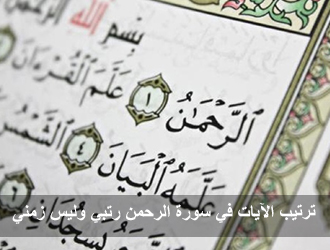 بِسْمِ اللَّهِ الرَّحْمَٰنِ
الرَّحْمَٰنُ ١ عَلَّمَ الْقُرْءَانَ
عَلَّمَهُ الْبَيَانَ ٤ الشَّمْسُ
ترتيب الآيات في سورة الرحمن رتبي وليس زمني
يَسْجُدَانِ ٦